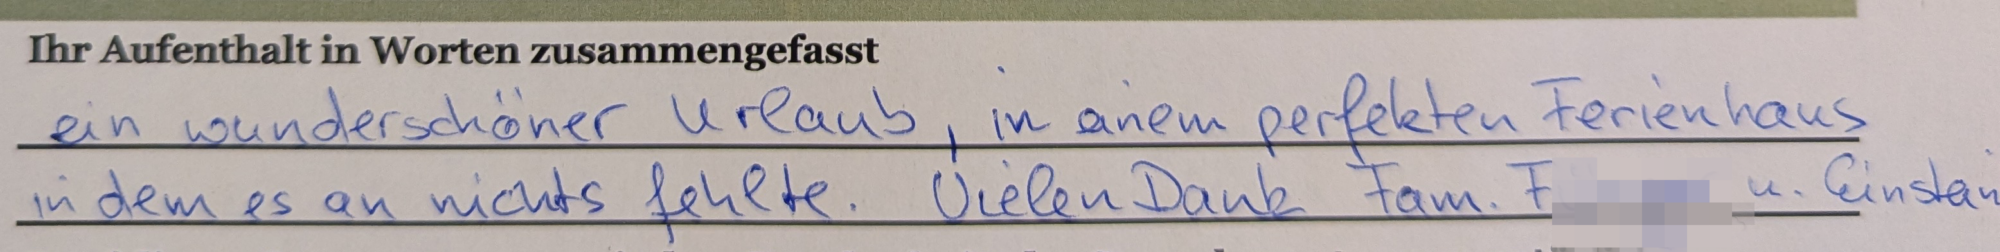 Ihr Aufenthalt in Worten zusammengefasst
ein wunderschöner Urlaub, in einem perfekten Ferienhaus
in dem es an nichts fehlte. Vielen Dank Fam. F u. Einstein